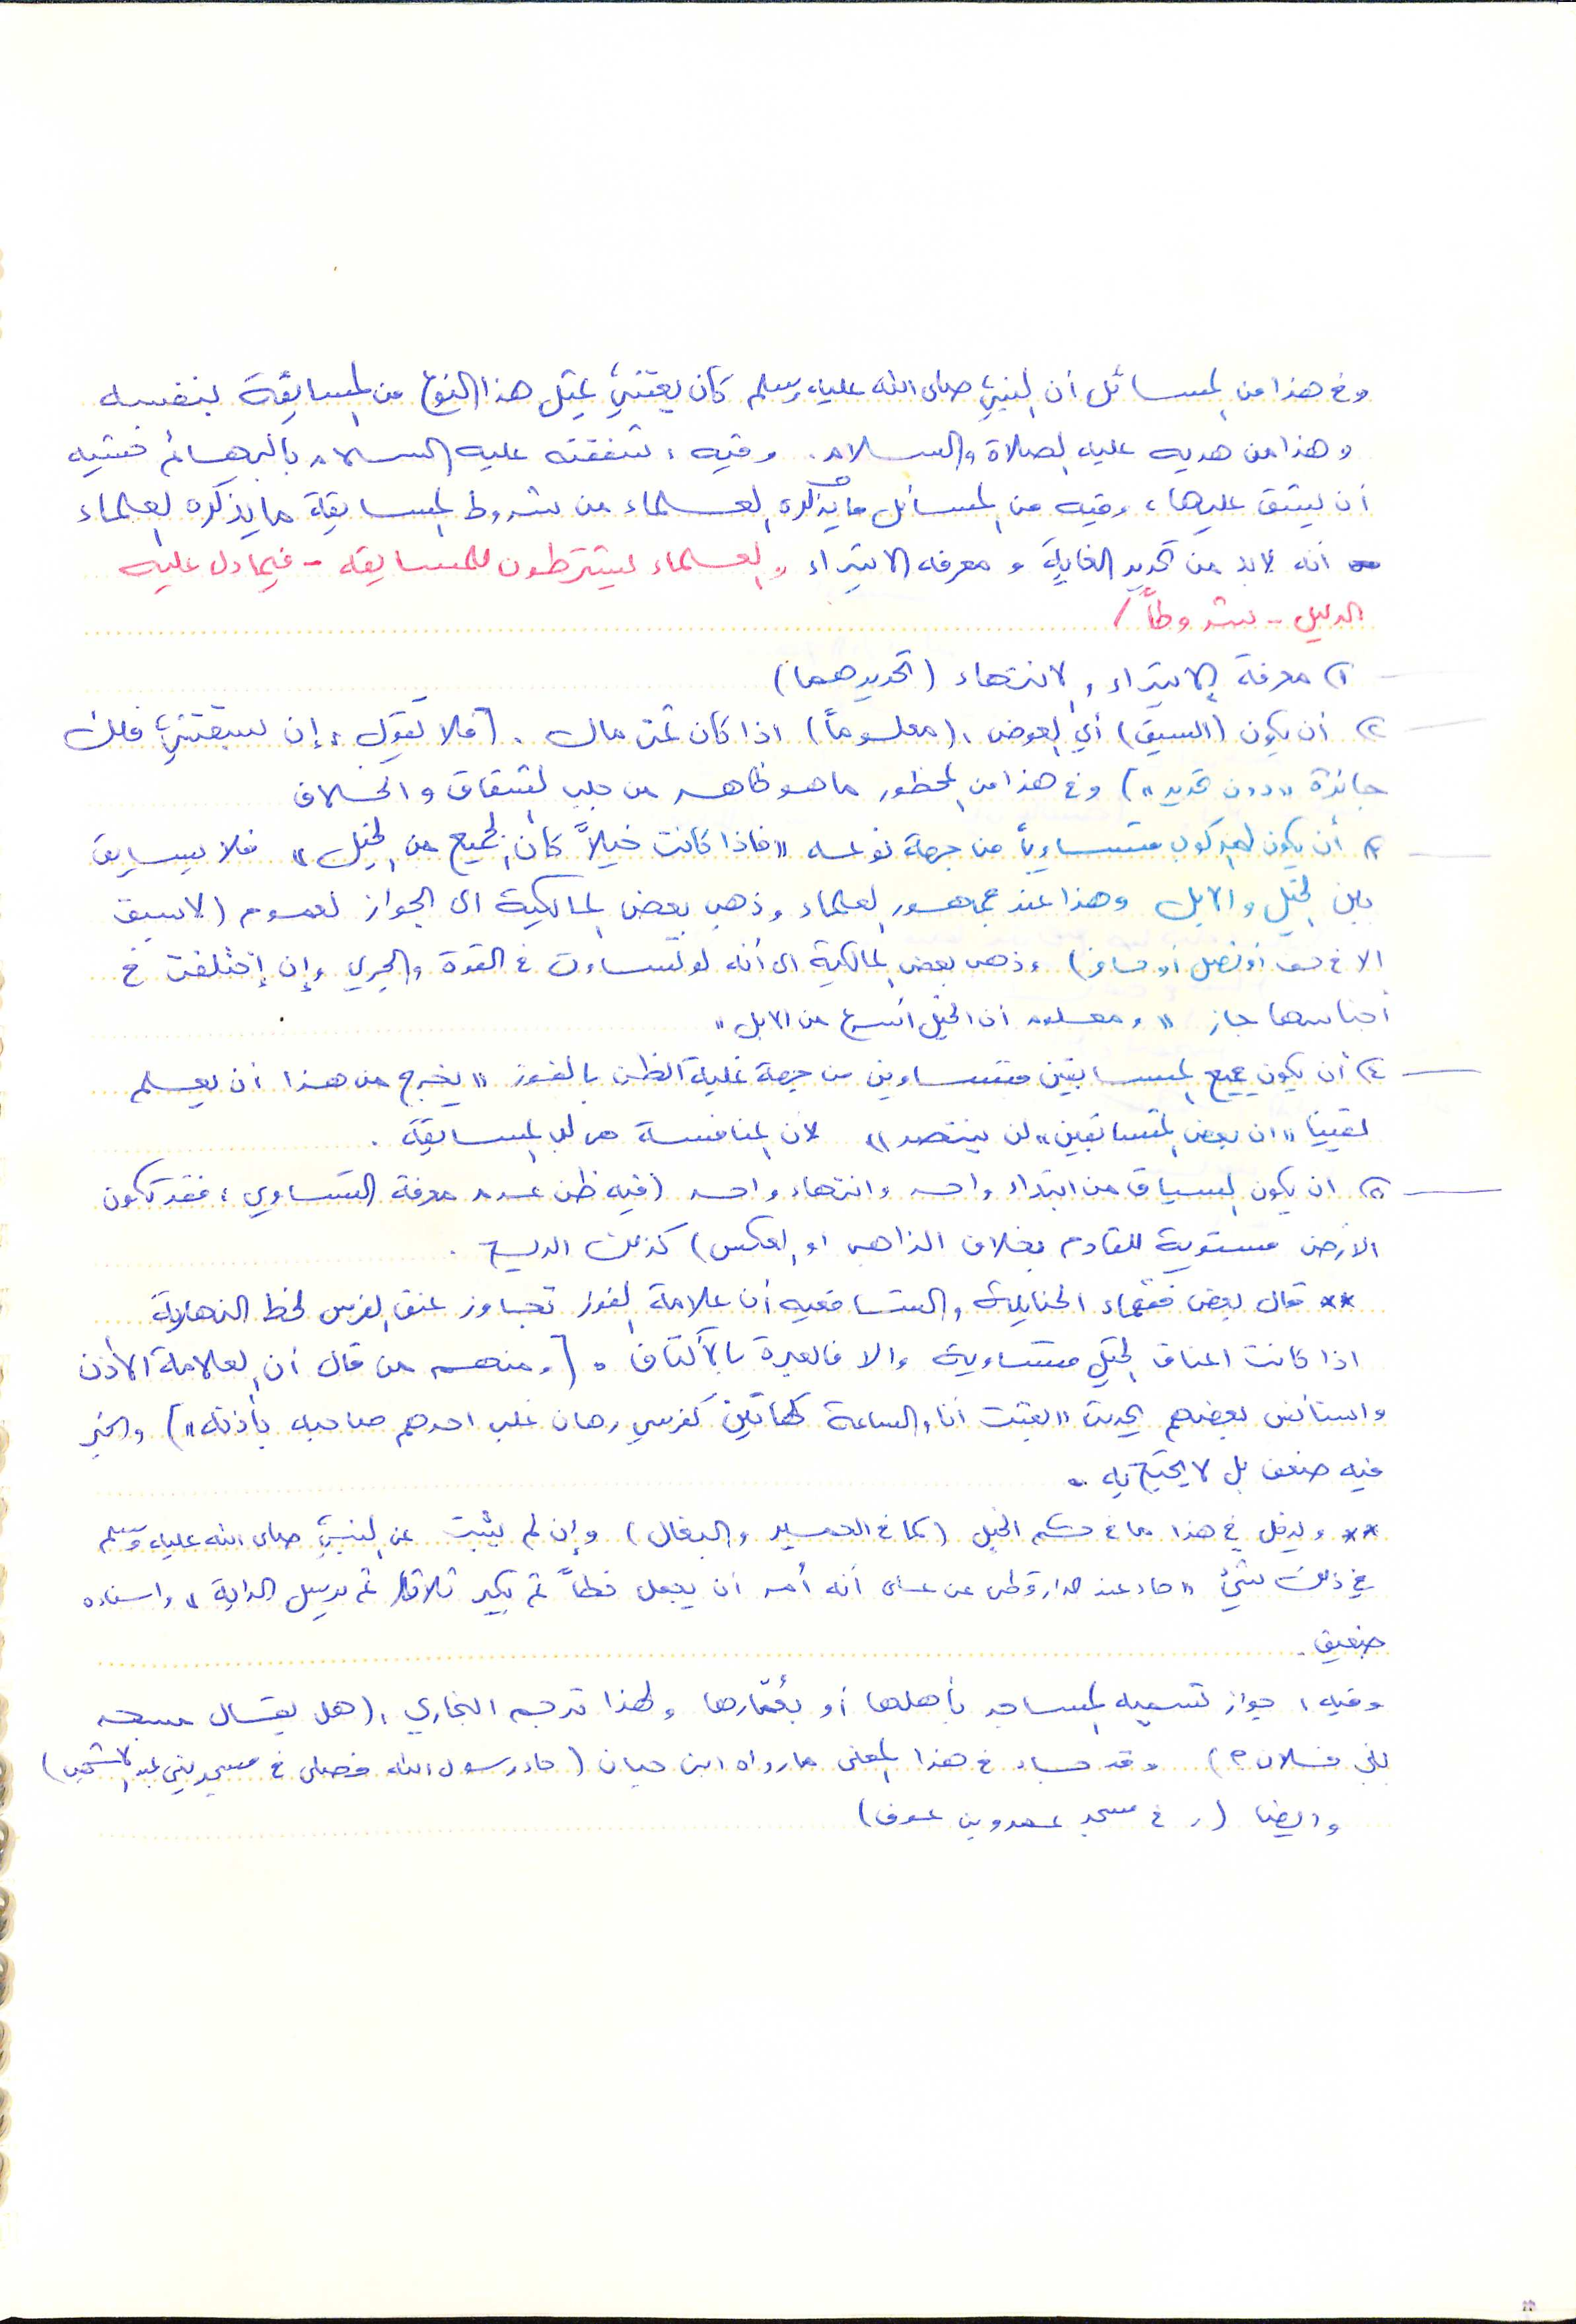 وفي هذا من المسائل أن النبي صلى الله عليه وسلم كان يعتني بمثل هذا النوع من المسابقة بنفسه
وهذا من هديه عليه الصلاة والسلام. وفيه: شفقته عليه السلام بالبهائم خشية
أن يشق عليها، وفيه من المسائل ما يذكره العلماء من شروط المسابقة ما يذكره العلماء
أنه لابد من تحديد الغاية و معرفة الابتداء، والعلماء يشترطون للمسابقة - فيما دل عليه
الدليل - شروطاً /
١) معرفة الابتداء والانتهاء (تحديدهما)
٢) أن يكون (السبق) أي العوض، (معلوماً) اذا كان ثمن مال. [فلا تقول: إن سبقتني فلك
جائزة "دون تحديد"] وفي هذا من المحظور ما هو ظاهر من جلب الشقاق والخلاف
٣) أن يكون المركوب متساوياً من جهة نوعه "فاذا كانت خيلاً كان الجميع من الخيل" فلا يسابق
بين الخيل والابل وهذا عند جماهير العلماء وذهب بعض المالكية الى الجواز لعموم (لا سبق
الا في خف أو نصل أو حافر) وذهب بعض المالكية الى أنه لو تساوت في القوة والجري وإن إختلفت في
أجناسها جاز "ومعلوم أن الخيل أسرع من الابل"
٤) أن يكون جميع المتسابقين متساوين من جهة غلبة الظن بالفوز "يخرج من هذا أن يعلم
يقينا "ان بعض المتسابقين" لن ينتصر" لأن المنافسة هي لب المسابقة.
٥) ان يكون السباق من ابتداء واحد وانتهاء واحد (فيه ظن عدم معرفة التساوي، فقد تكون
الأرض مستوية للقادم بخلاف الذاهب او العكس) كذلك الريح.
** قال بعض فقهاء الحنابلة والشافعيه أن علامة الفوز تجاوز عنق الفرس لخط النهاية
اذا كانت اعناق الخيل متساوية والا فالعبرة بالأكتاف. [ومنهم من قال أن العلامة الأذن
واستأنس بعضهم بحديث "بعثت أنا والساعة كهاتين كفرسي رهان غلب احدهم صاحبه بأذنه"] والخبر
فيه ضعف بل لا يحتج به.
** ويدخل في هذا ما في حكم الخيل (كما في الحمير والبغال) وإن لم يثبت عن النبي صلى الله عليه وسلم
في ذلك شيء "جاء عند الدارقطني عن علي أنه أمر أن يجعل خطاً ثم يكبر ثلاثا ثم يرسل الدابة" واسناده
ضعيف.
وفيه، جواز تسمية المساجد بأهلها أو بعُمّارها ولهذا ترجم البخاري، (هل يقال مسجد
بني فلان؟) وقد جاء في هذا المعنى ما رواه ابن حبان (جاء رسول الله فصلى في مسجد بني عبد الأشهل)
وايضا (و في مسجد عمرو بن عوف)